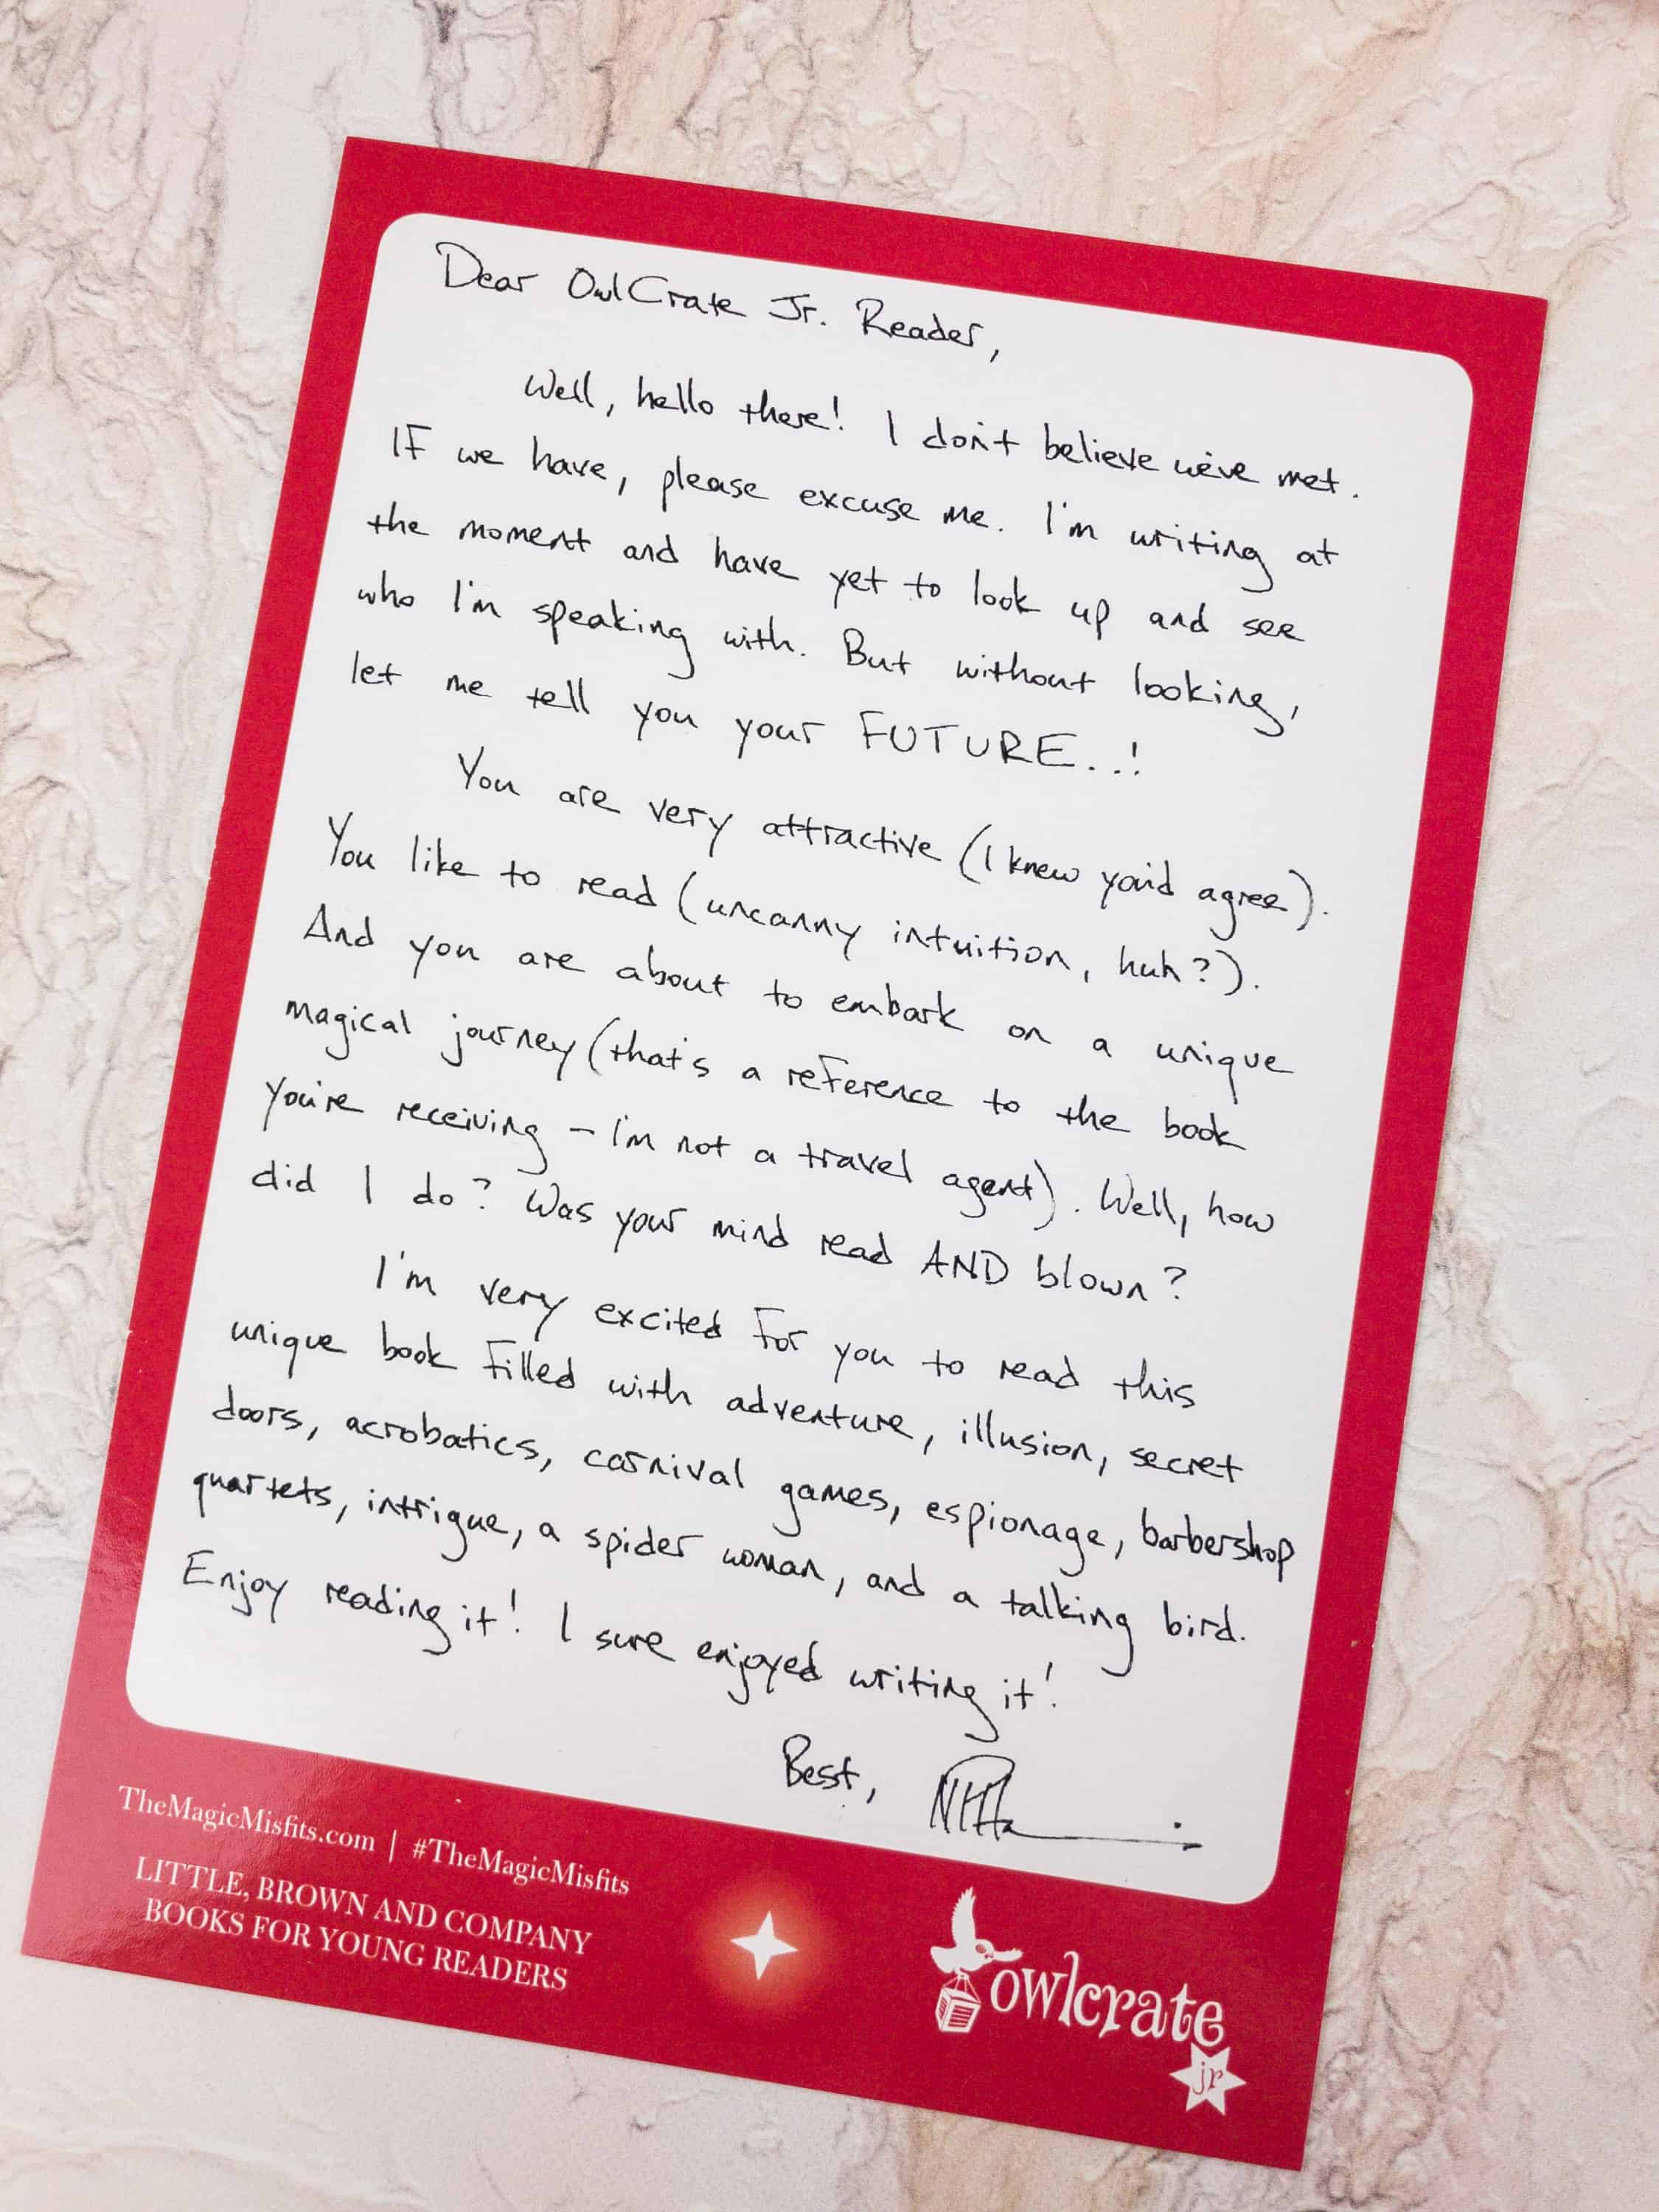 Dear OwlCrate Jr. Reader,
Well, hello there! I don't believe we've met.
If we have, please excuse me. I'm writing at
the moment and have yet to look up and see
who I'm speaking with. But without looking,
let me tell you your FUTURE..!
You are very attractive (I knew you'd agree).
You like to read (uncanny intuition, huh?).
And you are about to embark on a unique
magical journey (that's a reference to the book
you're receiving – I'm not a travel agent). Well, how
did I do? Was your mind read AND blown?
I'm very excited for you to read this
unique book filled with adventure, illusion, secret
doors, acrobatics, carnival games, espionage, barbershop
quartets, intrigue, a spider woman, and a talking bird.
Enjoy reading it! I sure enjoyed writing it!
Best,
TheMagicMisfits.com | #TheMagicMisfits
LITTLE, BROWN AND COMPANY
BOOKS FOR YOUNG READERS
owlcrate
jr